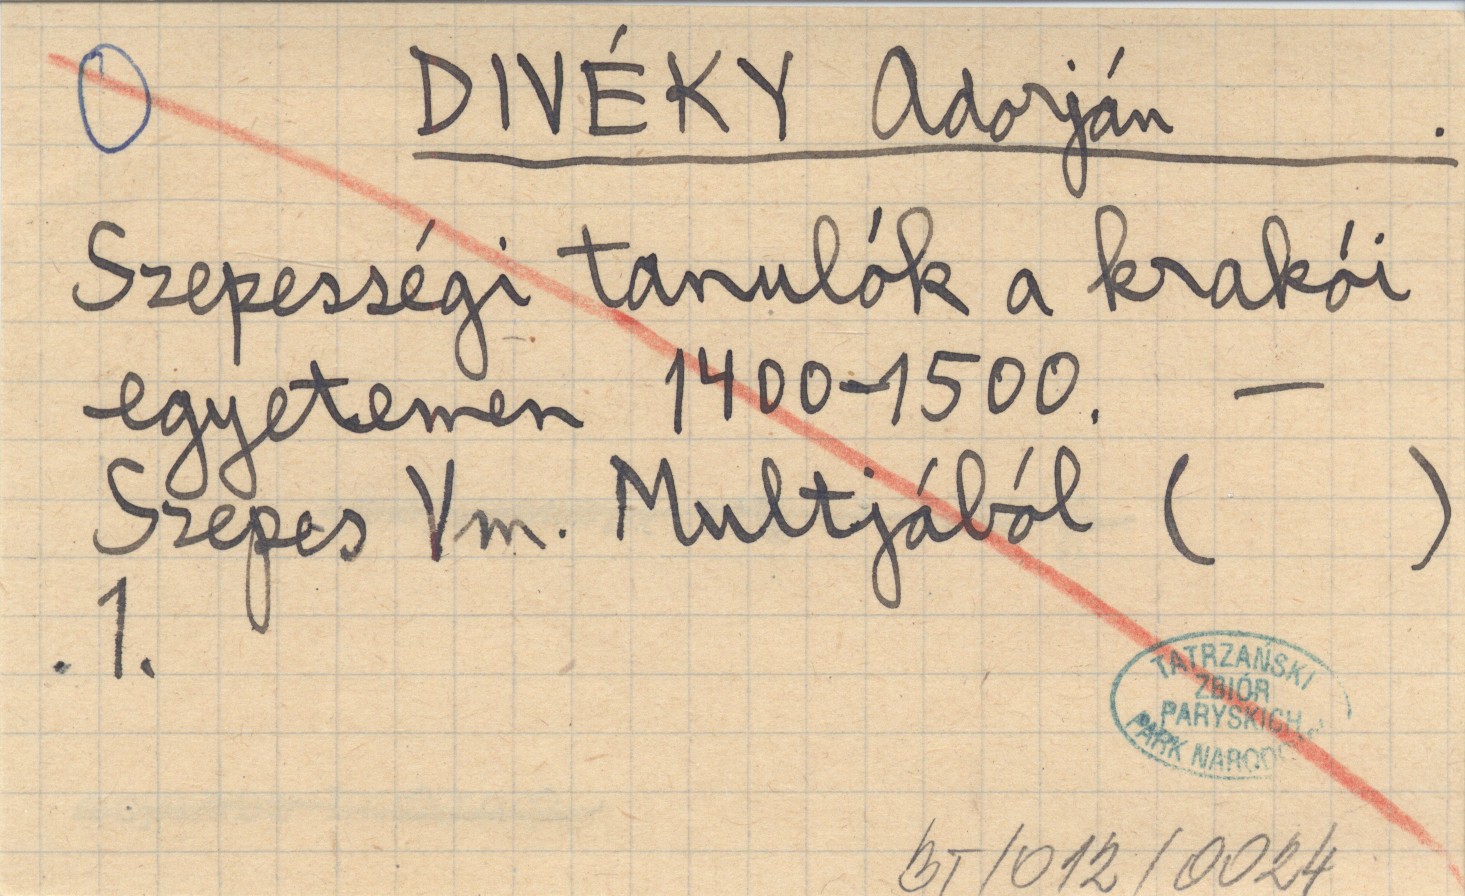 DIVÉKY Adorján .
Szepességi tanulók a krakói
egyetemen 1400-1500. —
Szepes Vm. Multjából ( )
. 1.
TATRZAŃSKI
ZBIÓR
PARYSKICH
PARK NARODO
BT/012/0024